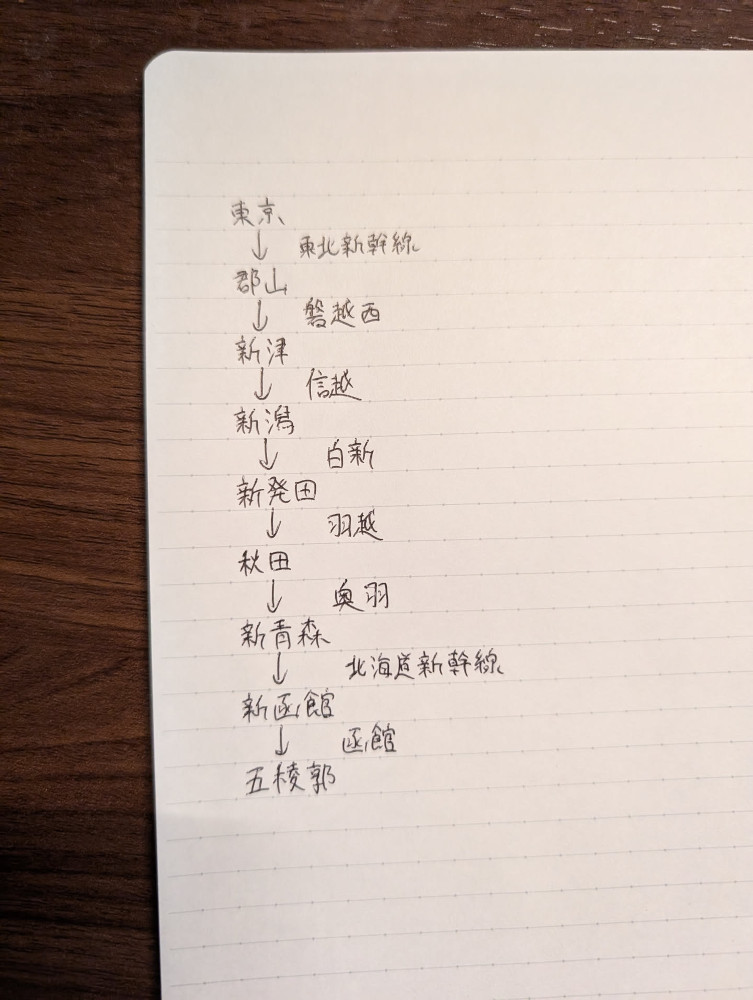 東京
↓ 東北新幹線
郡山
↓ 磐越西
新津
↓ 信越
新潟
↓ 白新
新発田
↓ 羽越
秋田
↓ 奥羽
新青森
↓ 北海道新幹線
新函館
↓ 函館
五稜郭